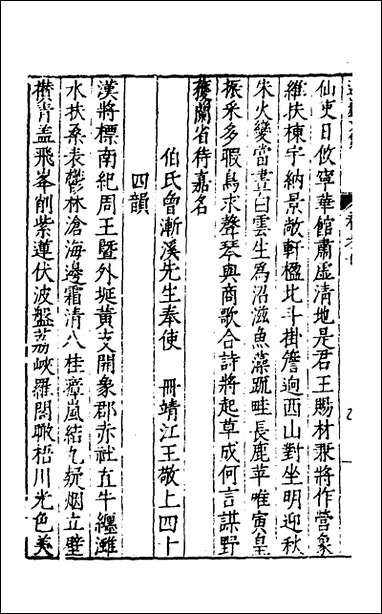 仙吏日攸寧華館肅虛清地是君王賜材兼將作營象
維扶棟宇納景敞軒楹北斗掛簷逈西山對坐明迎秋
朱火變當晝白雲生為沼滋魚藻疏畦長鹿苹唯寅皇
振采多暇鳥求聲琴與商歌合詩將起草成何言謀野
獲蘭省待嘉名
伯氏曾漸溪先生奉使 冊靖江王敬上四十
四韻
漢將標南紀周王暨外埏黃支開象郡赤社直牛纏灕
水扶桑表鬱林滄海邊霜清八桂瘴嵐結九疑烟立壁
攢青盖飛峯削紫蓮伏波盤荔峽羅閣瞰梧川光色美